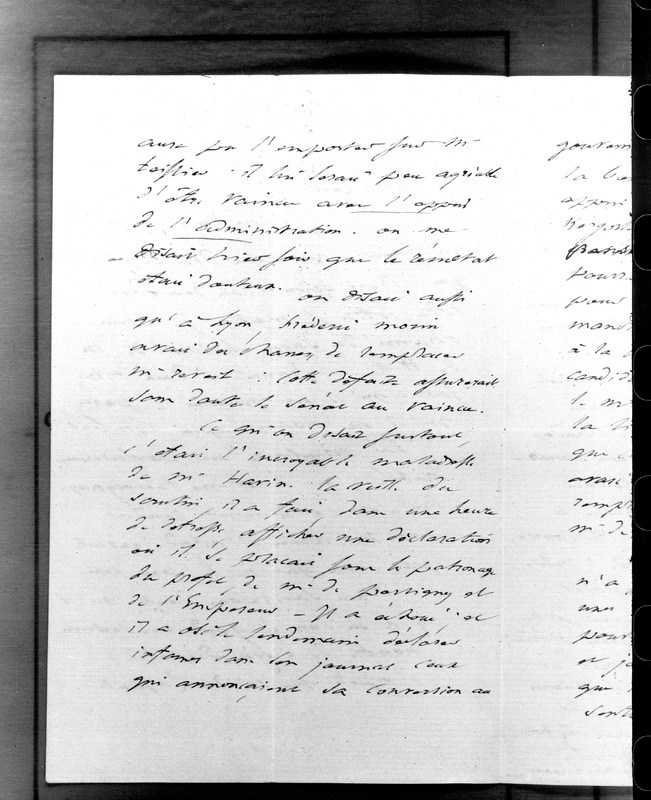 aura pu l'emporter sur Mr
teissier. il lui serait peu agréable
d'être vaincu avec l'appui
de l'administration. on me
disait hier soir que le résultat
était douteux. on disait aussi
qu'à Lyon, frédéric morin
avait des chances de remplacer
mr revest : cette défaite assurerait
sans doute le Sénat au vaincu.
Ce qu'on disait surtout,
c'était l'incroyable maladresse
de mr Havin. la veille du
scrutin, il a fait dans une heure
de détresse, afficher une déclaration
où il se plaçait sous le patronage
du préfet, de mr de persigny et
de l'Empereur - Il a échoué, et
il a osé le lendemain déclarer
infâmes dans son journal ceux
qui annonçaient sa conversion au
gouvern
la
appui
pour
mand
à la
candid
le m
la
que
avai
rempl
mr de
n'a
une
pour
et je
que